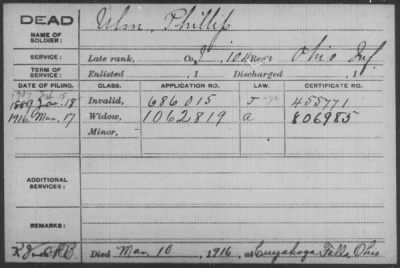 DEAD
NAME OF SOLDIER: Ulm, Phillip
SERVICE: Late rank, Co. I, 104 Reg't Ohio Inf
TERM OF SERVICE: Enlisted , 1 Discharged , 1
DATE OF FILING. CLASS. APPLICATION NO. LAW. CERTIFICATE NO.
1907
1889 Jan. 18 Invalid, 686 015 J 455771
1916 Mar. 17 Widow, 1062819 a 806985
Minor,
ADDITIONAL SERVICES:
REMARKS:
Died Mar. 10, 1916, at Cuyahoga Falls, Ohio